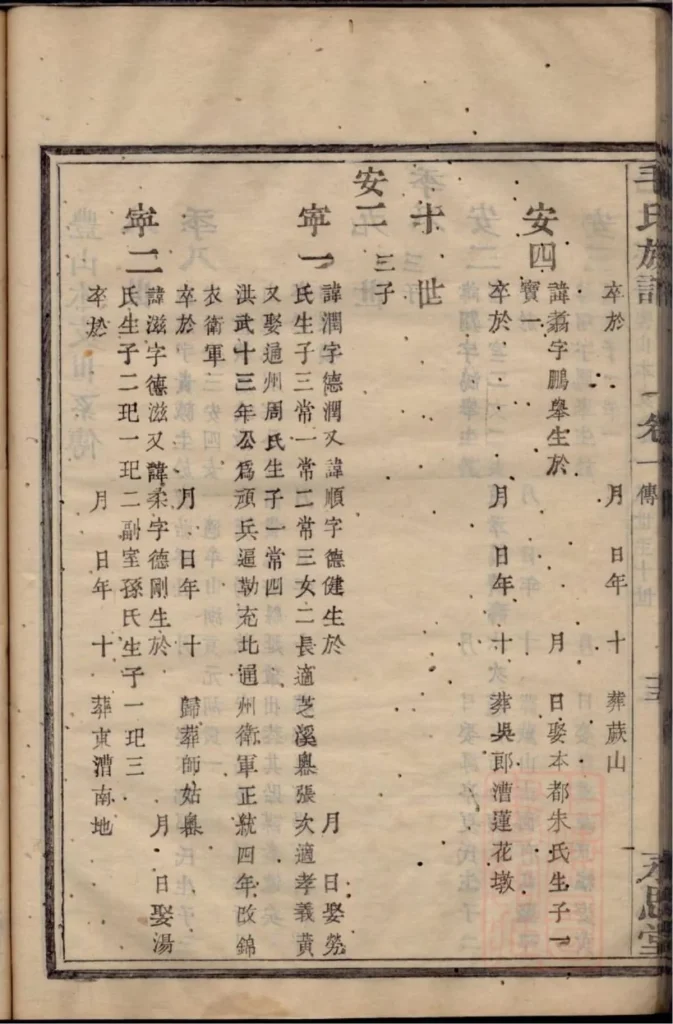 毛氏族譜
卷一
傳
世至十世
永思堂
卒於 月 日年 十 葬蕨山
安四
諱翥字鵬舉生於 月 日娶本都朱氏生子一
寶一
卒於 月 日年 十 葬吳郎漕蓮花墩
十世
安二 三子
寧一
諱潤字德潤又諱順字德健生於 月 日娶勞
氏生子三常一常二常三女二長適芝溪嶴張次適孝義黃
又娶通州周氏生子一常四
洪武十三年公爲頑兵逼勒充北通州衛軍正統四年改錦
衣衛軍
卒於 月 日年 十 歸葬師姑嶴
寧二
諱滋字德滋又諱柔字德剛生於 月 日娶湯
氏生子二玘一玘二副室孫氏生子一玘三
卒於 月 日年 十 葬東漕南地